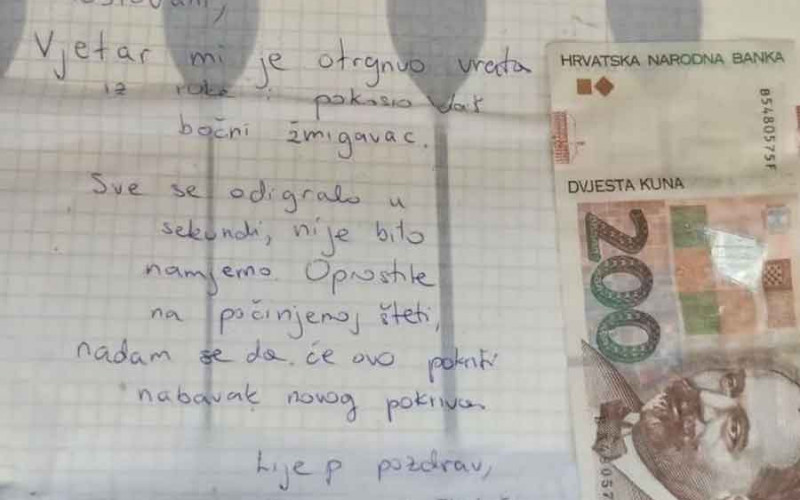 Poštovani,
Vjetar mi je otrgnuo vrata
iz ruke i pokosio Vaš
bočni žmigavac.
Sve se odigralo u
sekundi, nije bilo
namjerno. Oprostite
na počinjenoj šteti,
nadam se da će ovo pokriti
nabavak novog pokrivca
Lijep pozdrav,
HRVATSKA NARODNA BANKA
B5480575F
DVJESTA KUNA
200